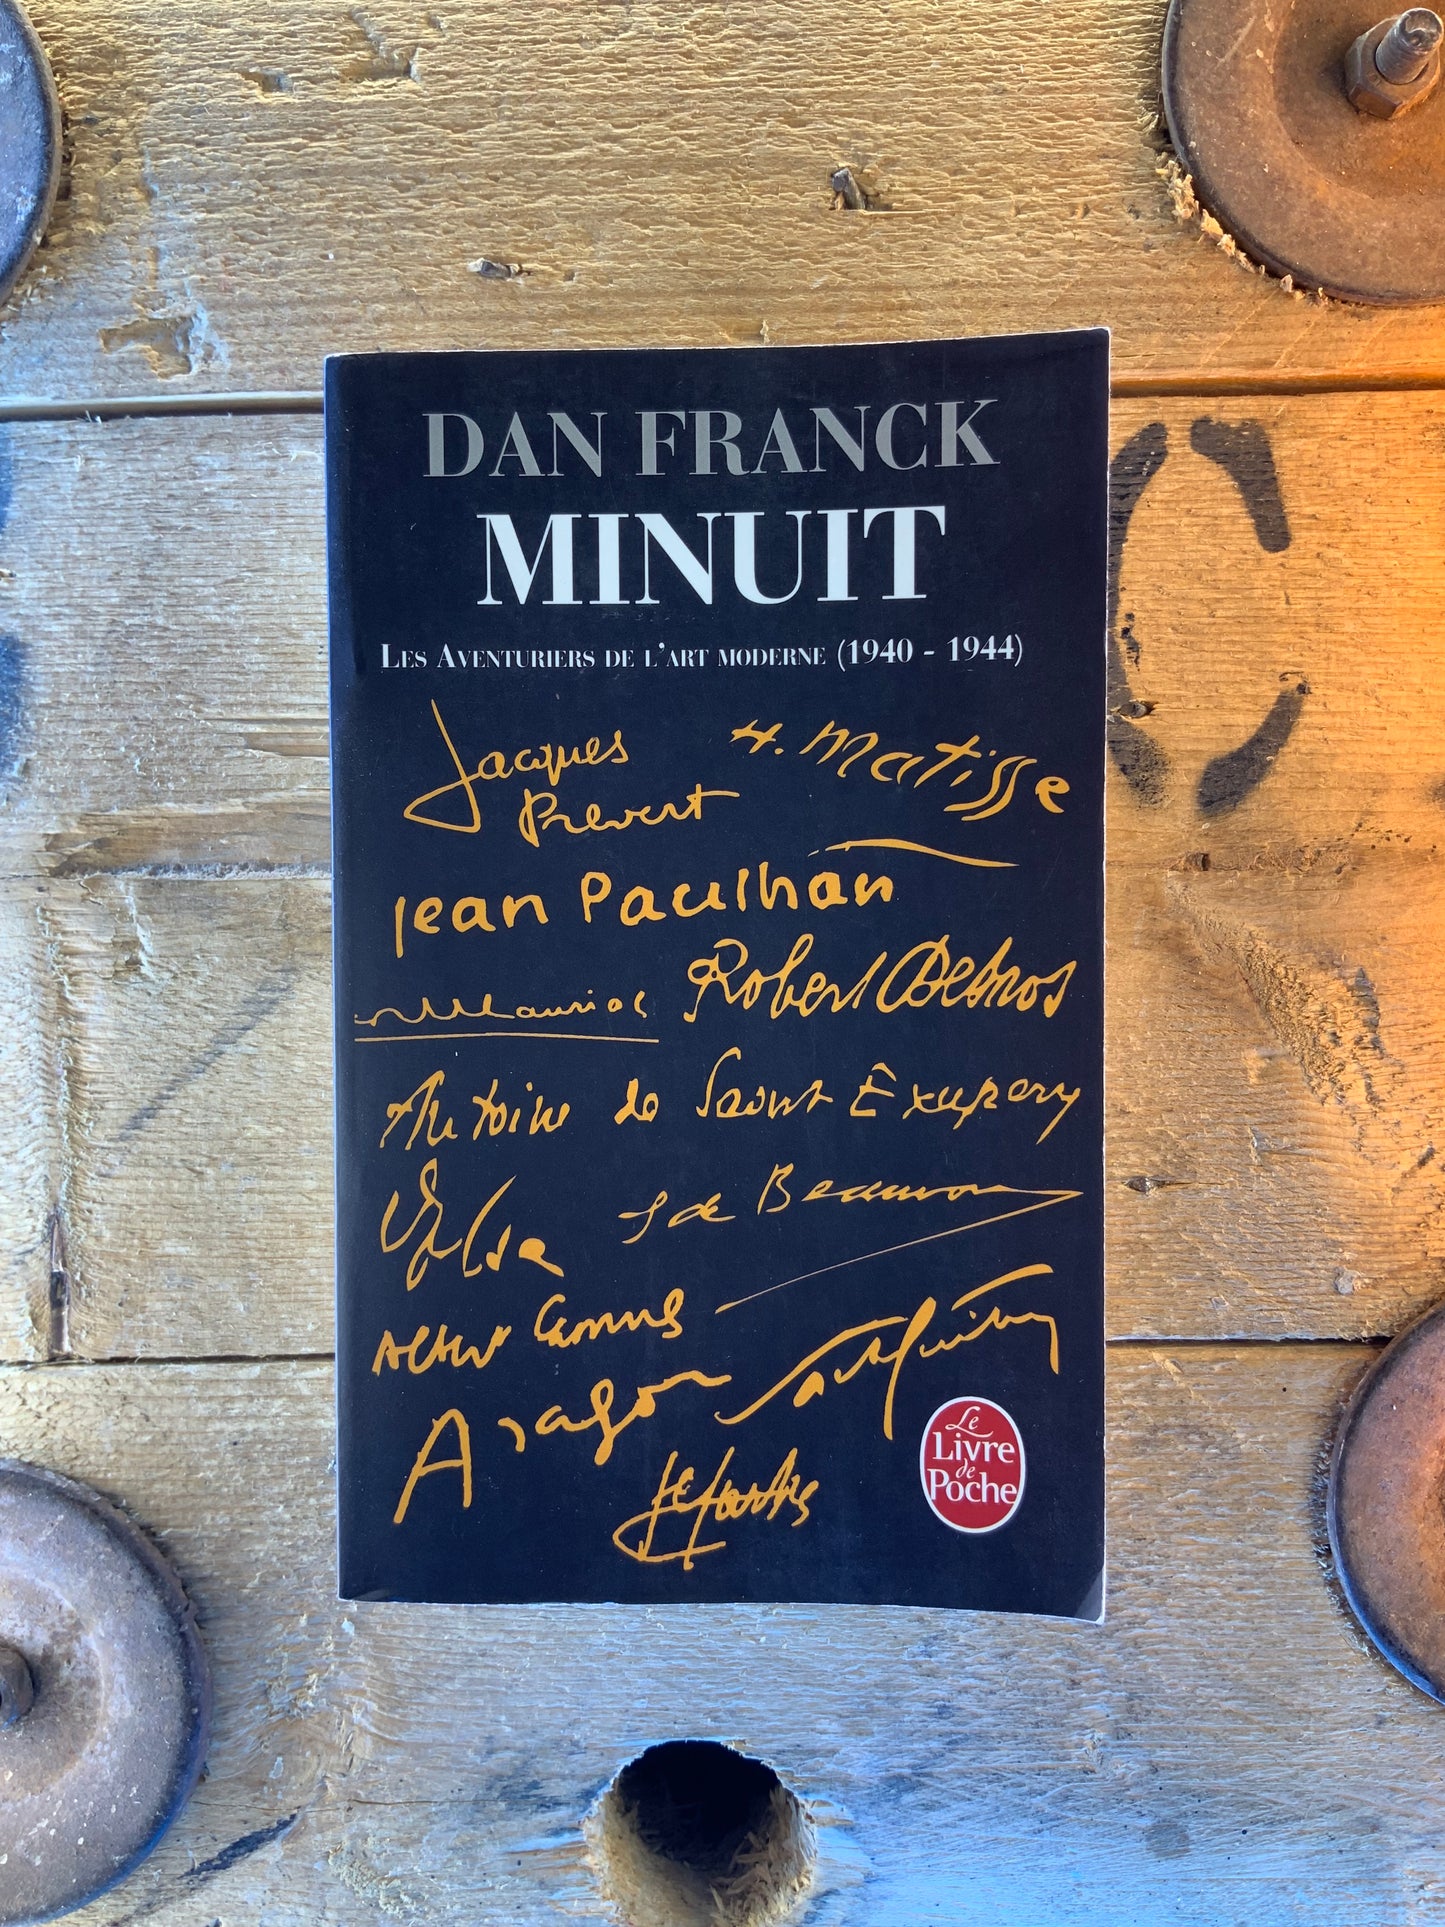 DAN FRANCK
MINUIT
LES AVENTURIERS DE L'ART MODERNE (1940 - 1944)
Jacques
Prevert
H. Matisse
Jean Paulhan
Mauriac
Robert Desnos
Antoine de Saint Exupéry
Elsa
S de Beauvoir
Albert Camus
Aragon
Le
Livre
de
Poche
C